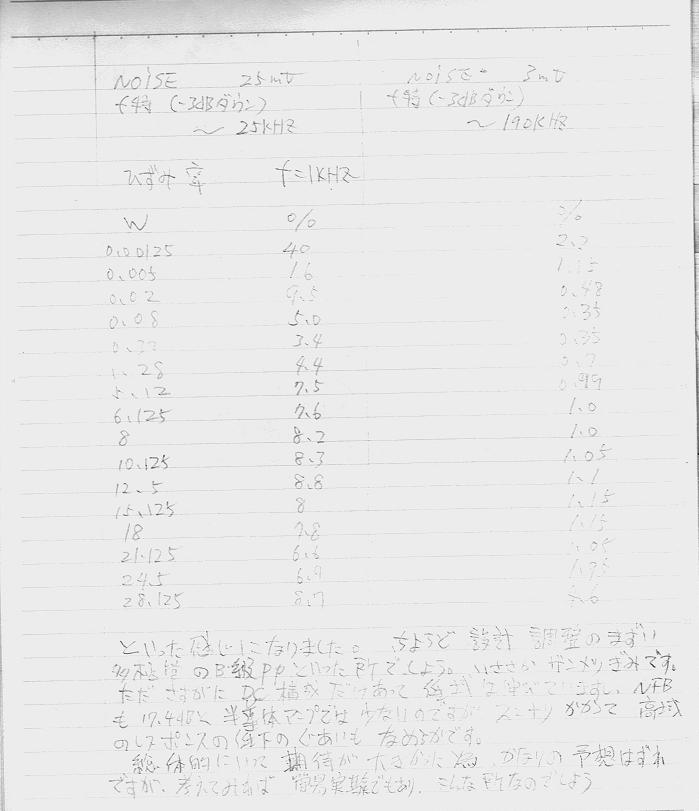 NOISE 25mV NOISE 3mV
f特(-3dBダウン) f特(-3dBダウン)
～25KHZ ～190KHZ
ひずみ率 f=1KHZ
W % %
0.00125 40 2.2
0.005 16 1.15
0.02 9.5 0.48
0.08 5.0 0.35
0.32 3.4 0.35
1.28 4.4
5.12 7.5 0.99
6.125 7.6 1.0
8 8.2 1.0
10.125 8.3 1.05
12.5 8.8 1.1
15.125 8 1.15
18 7.8 1.15
21.125 6.6 1.05
24.5 6.9
28.125 8.7
といった感じになりました。ちょうど設計調整のまずい
多極管のB級PPといった所でしょう。いささかザンメリぎみです。
たださすがにDC構成だけあって NFB
も 半導体アンプでは少ないのですが スンナリかかって高域
のレスポンスの低下のぐあいもなめらかです。
総体的にいって期待が大きかった為、かなりの予想はずれ
ですが、考えてみれば簡易実験でもあり、こんな所なのでしょう